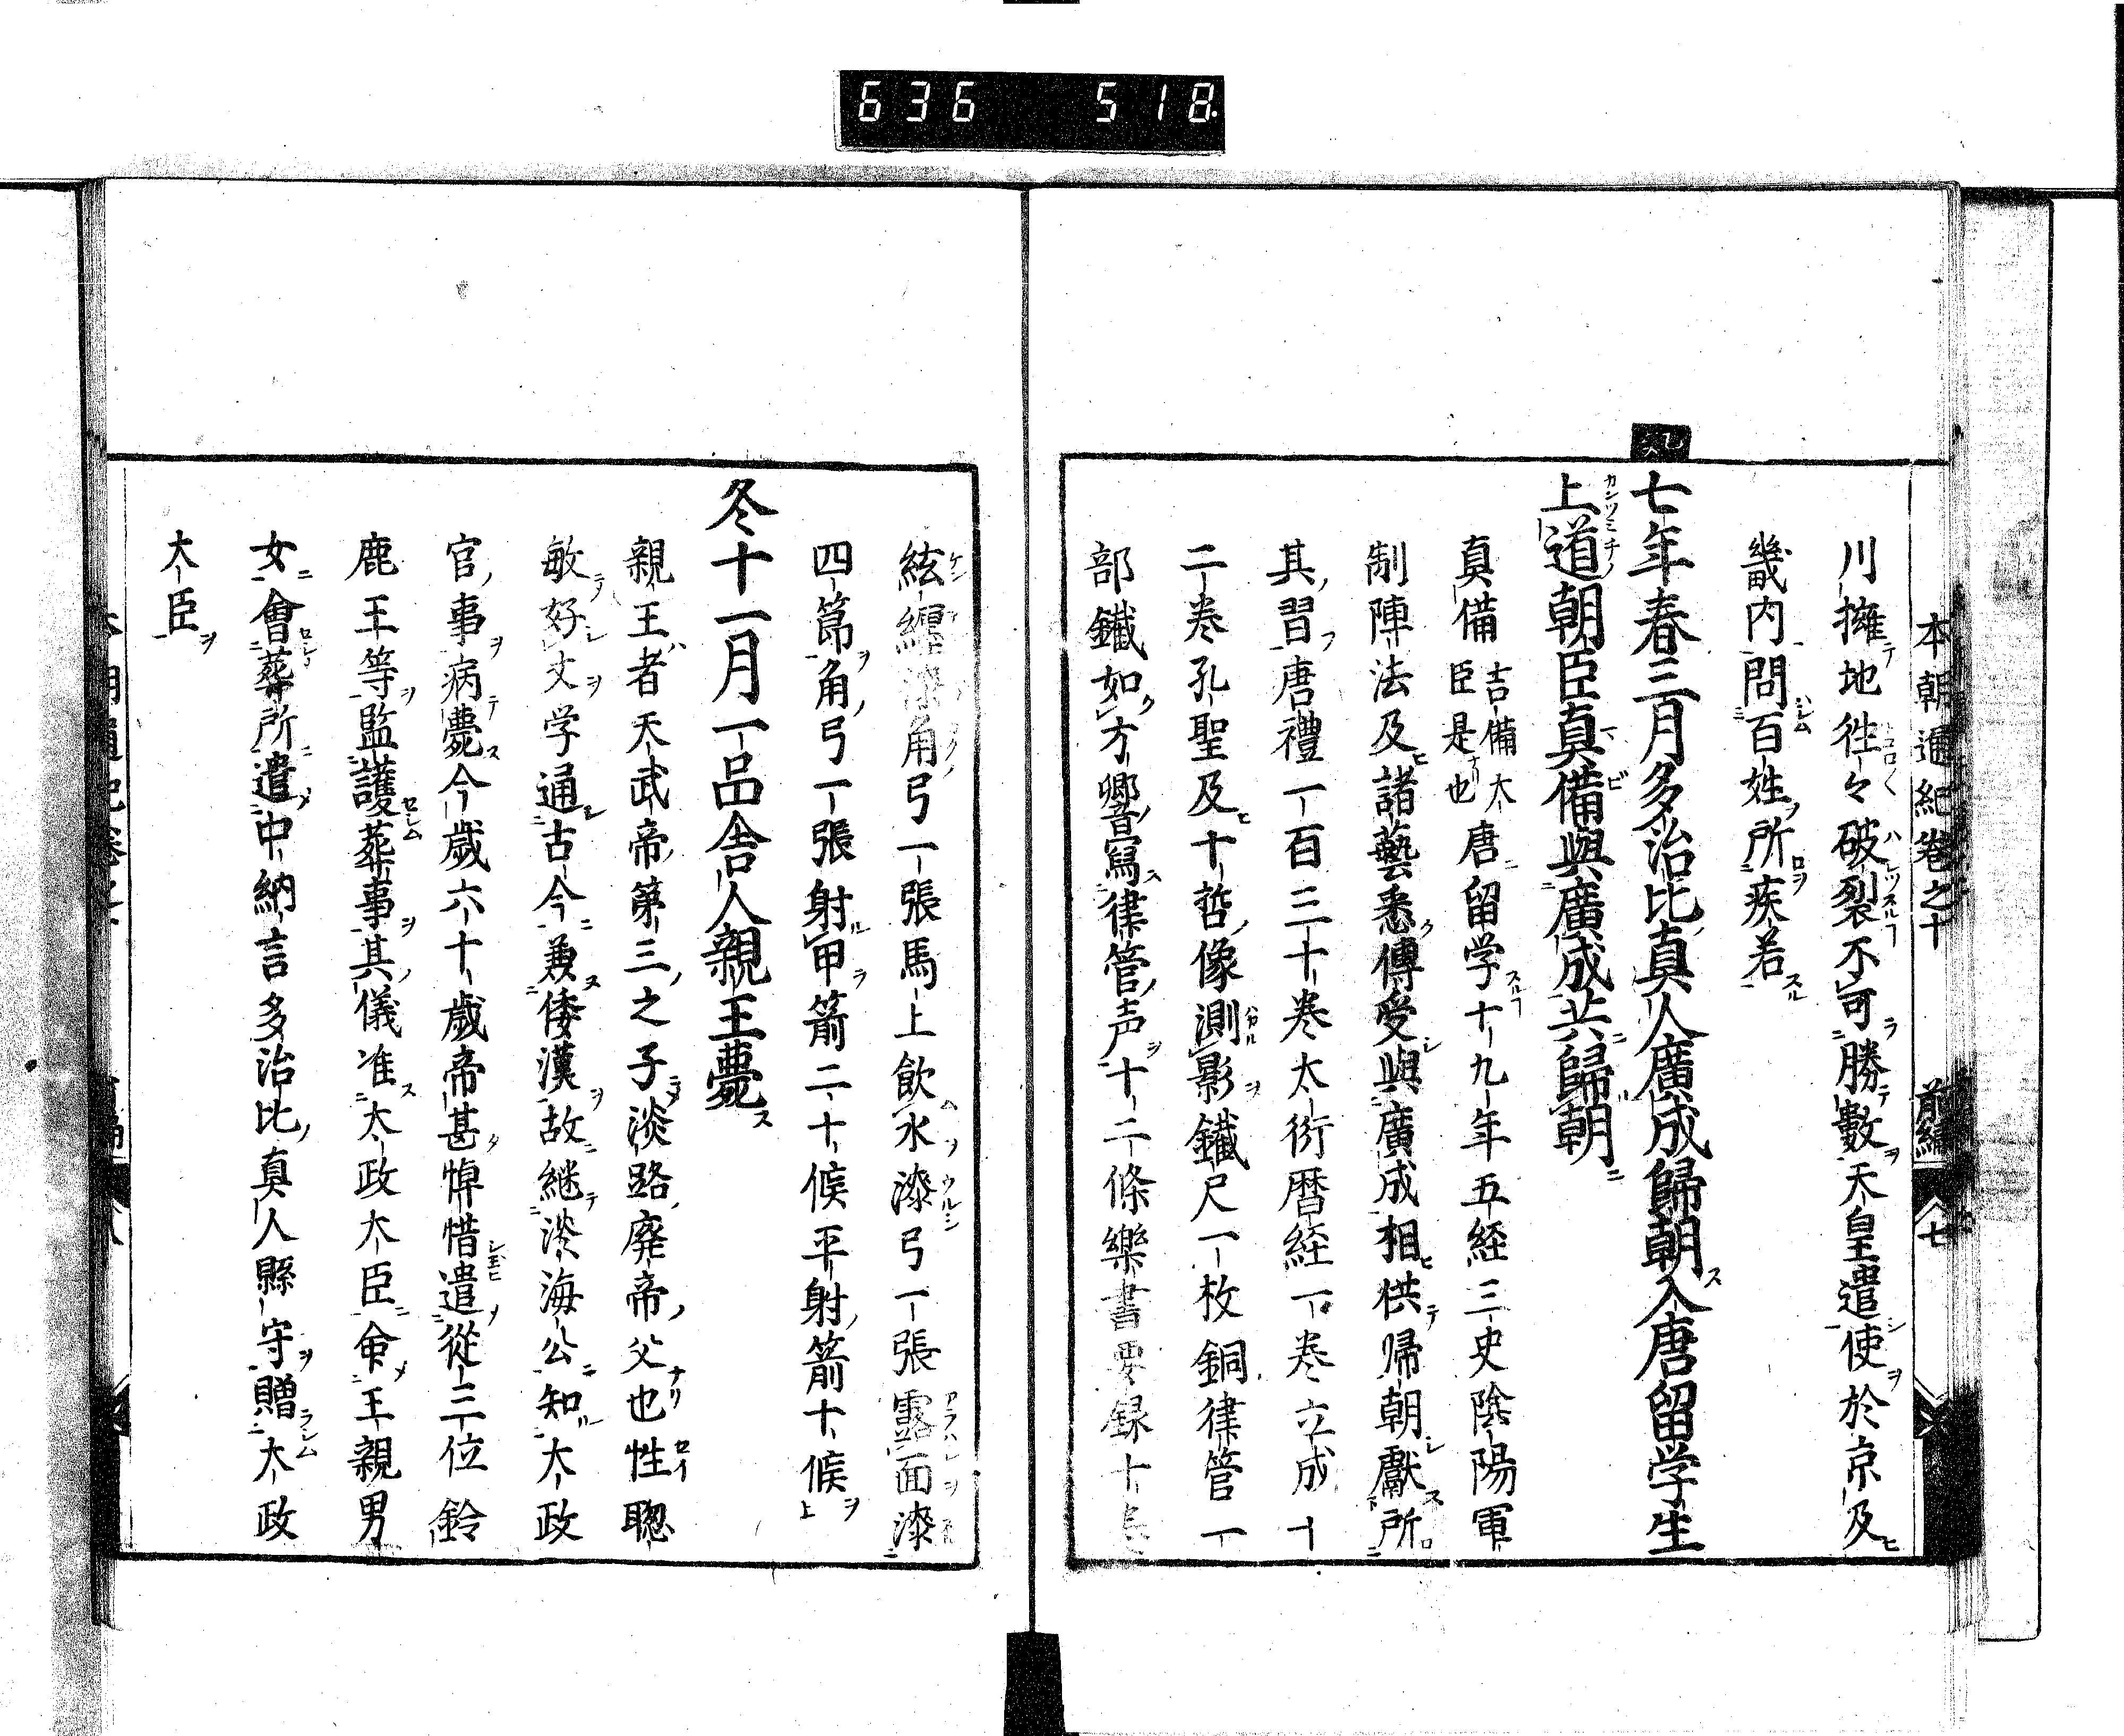 636 518
本朝通紀卷之十 前編 七
川擁地徃々破裂不可勝數天皇遣使於京及
畿内問百姓所疾若
七年春三月多治比真人廣成歸朝入唐留学生
上道朝臣真備與廣成共歸朝
真備吉備大臣是也唐留学十九年五経三史陰陽軍
制陣法及諸藝悉傳受與廣成相供帰朝獻所
其習唐禮一百三十卷太衍暦経一卷立成十
二卷孔聖及十哲像測影鐵尺一枚銅律管一
部鐵如方響寫律管声十二條樂書要録十卷
絃纒漆角弓一張馬上飲水漆弓一張露面漆
四節角弓一張射甲箭二十候平射箭十候
冬十一月一品舎人親王薨
親王者天武帝第三之子淡路廃帝父也性聡
敏好文学通古今兼倭漢故継淡海公知太政
官事病薨今歳六十歳帝甚悼惜遣從三位鈴
鹿王等監護葬事其儀准太政大臣命王親男
女會葬所遣中納言多治比真人縣守贈太政
大臣